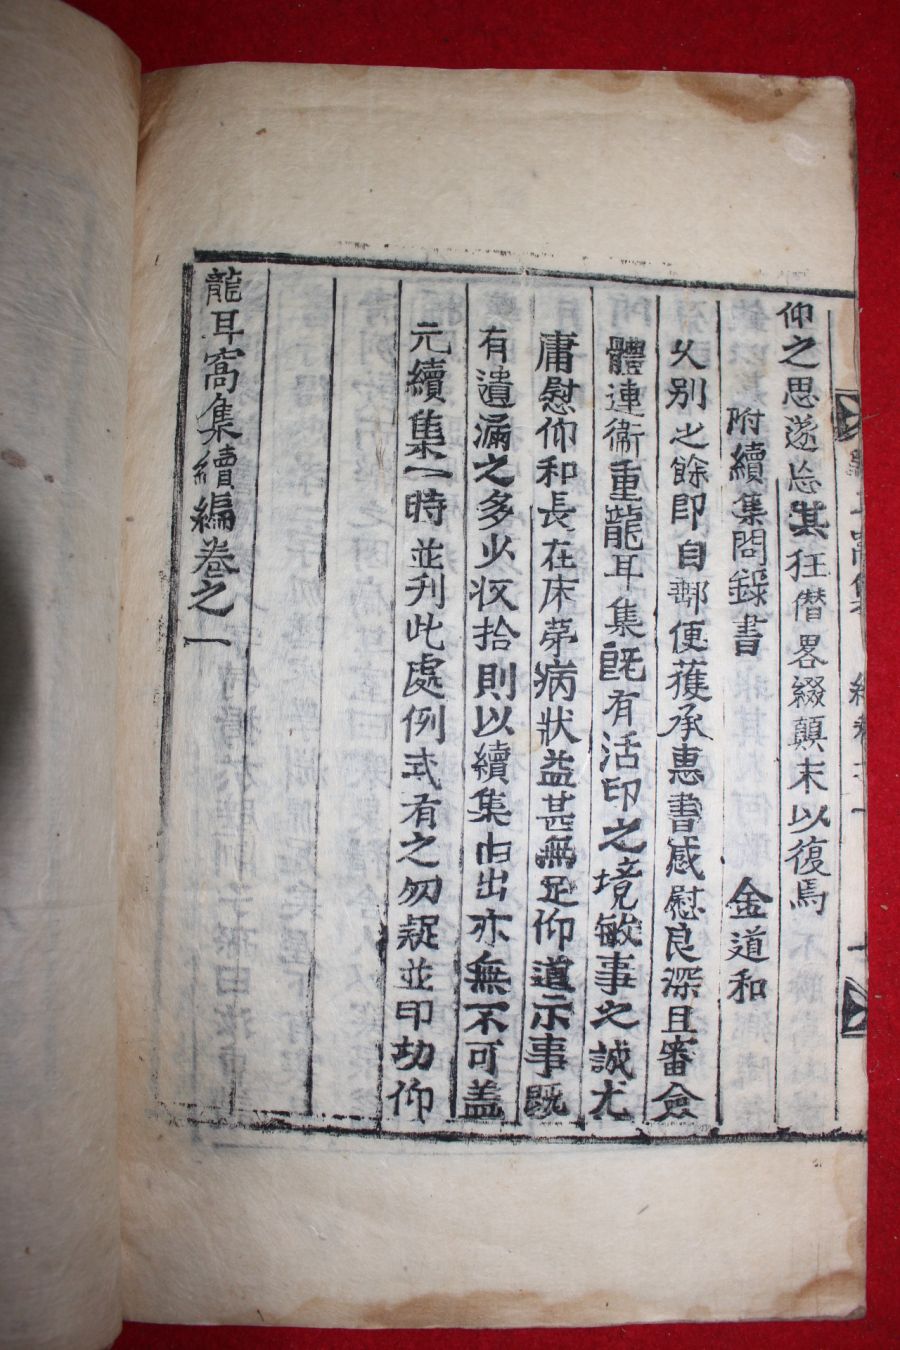 仰之思遂忘其狂僭畧綴顚末以復焉
附續集問録書 金道和
久别之餘即自郵便獲承惠書感慰良深且審僉
體連衛重龍耳集旣有活印之境敏事之誠尤
庸慰仰和長在床苐病状益甚無足仰道示事旣
有遺漏之多少收拾則以續集出亦無不可盖
元續集一時並刋此處例式有之勿疑並印切仰
龍耳窩集續編卷之一